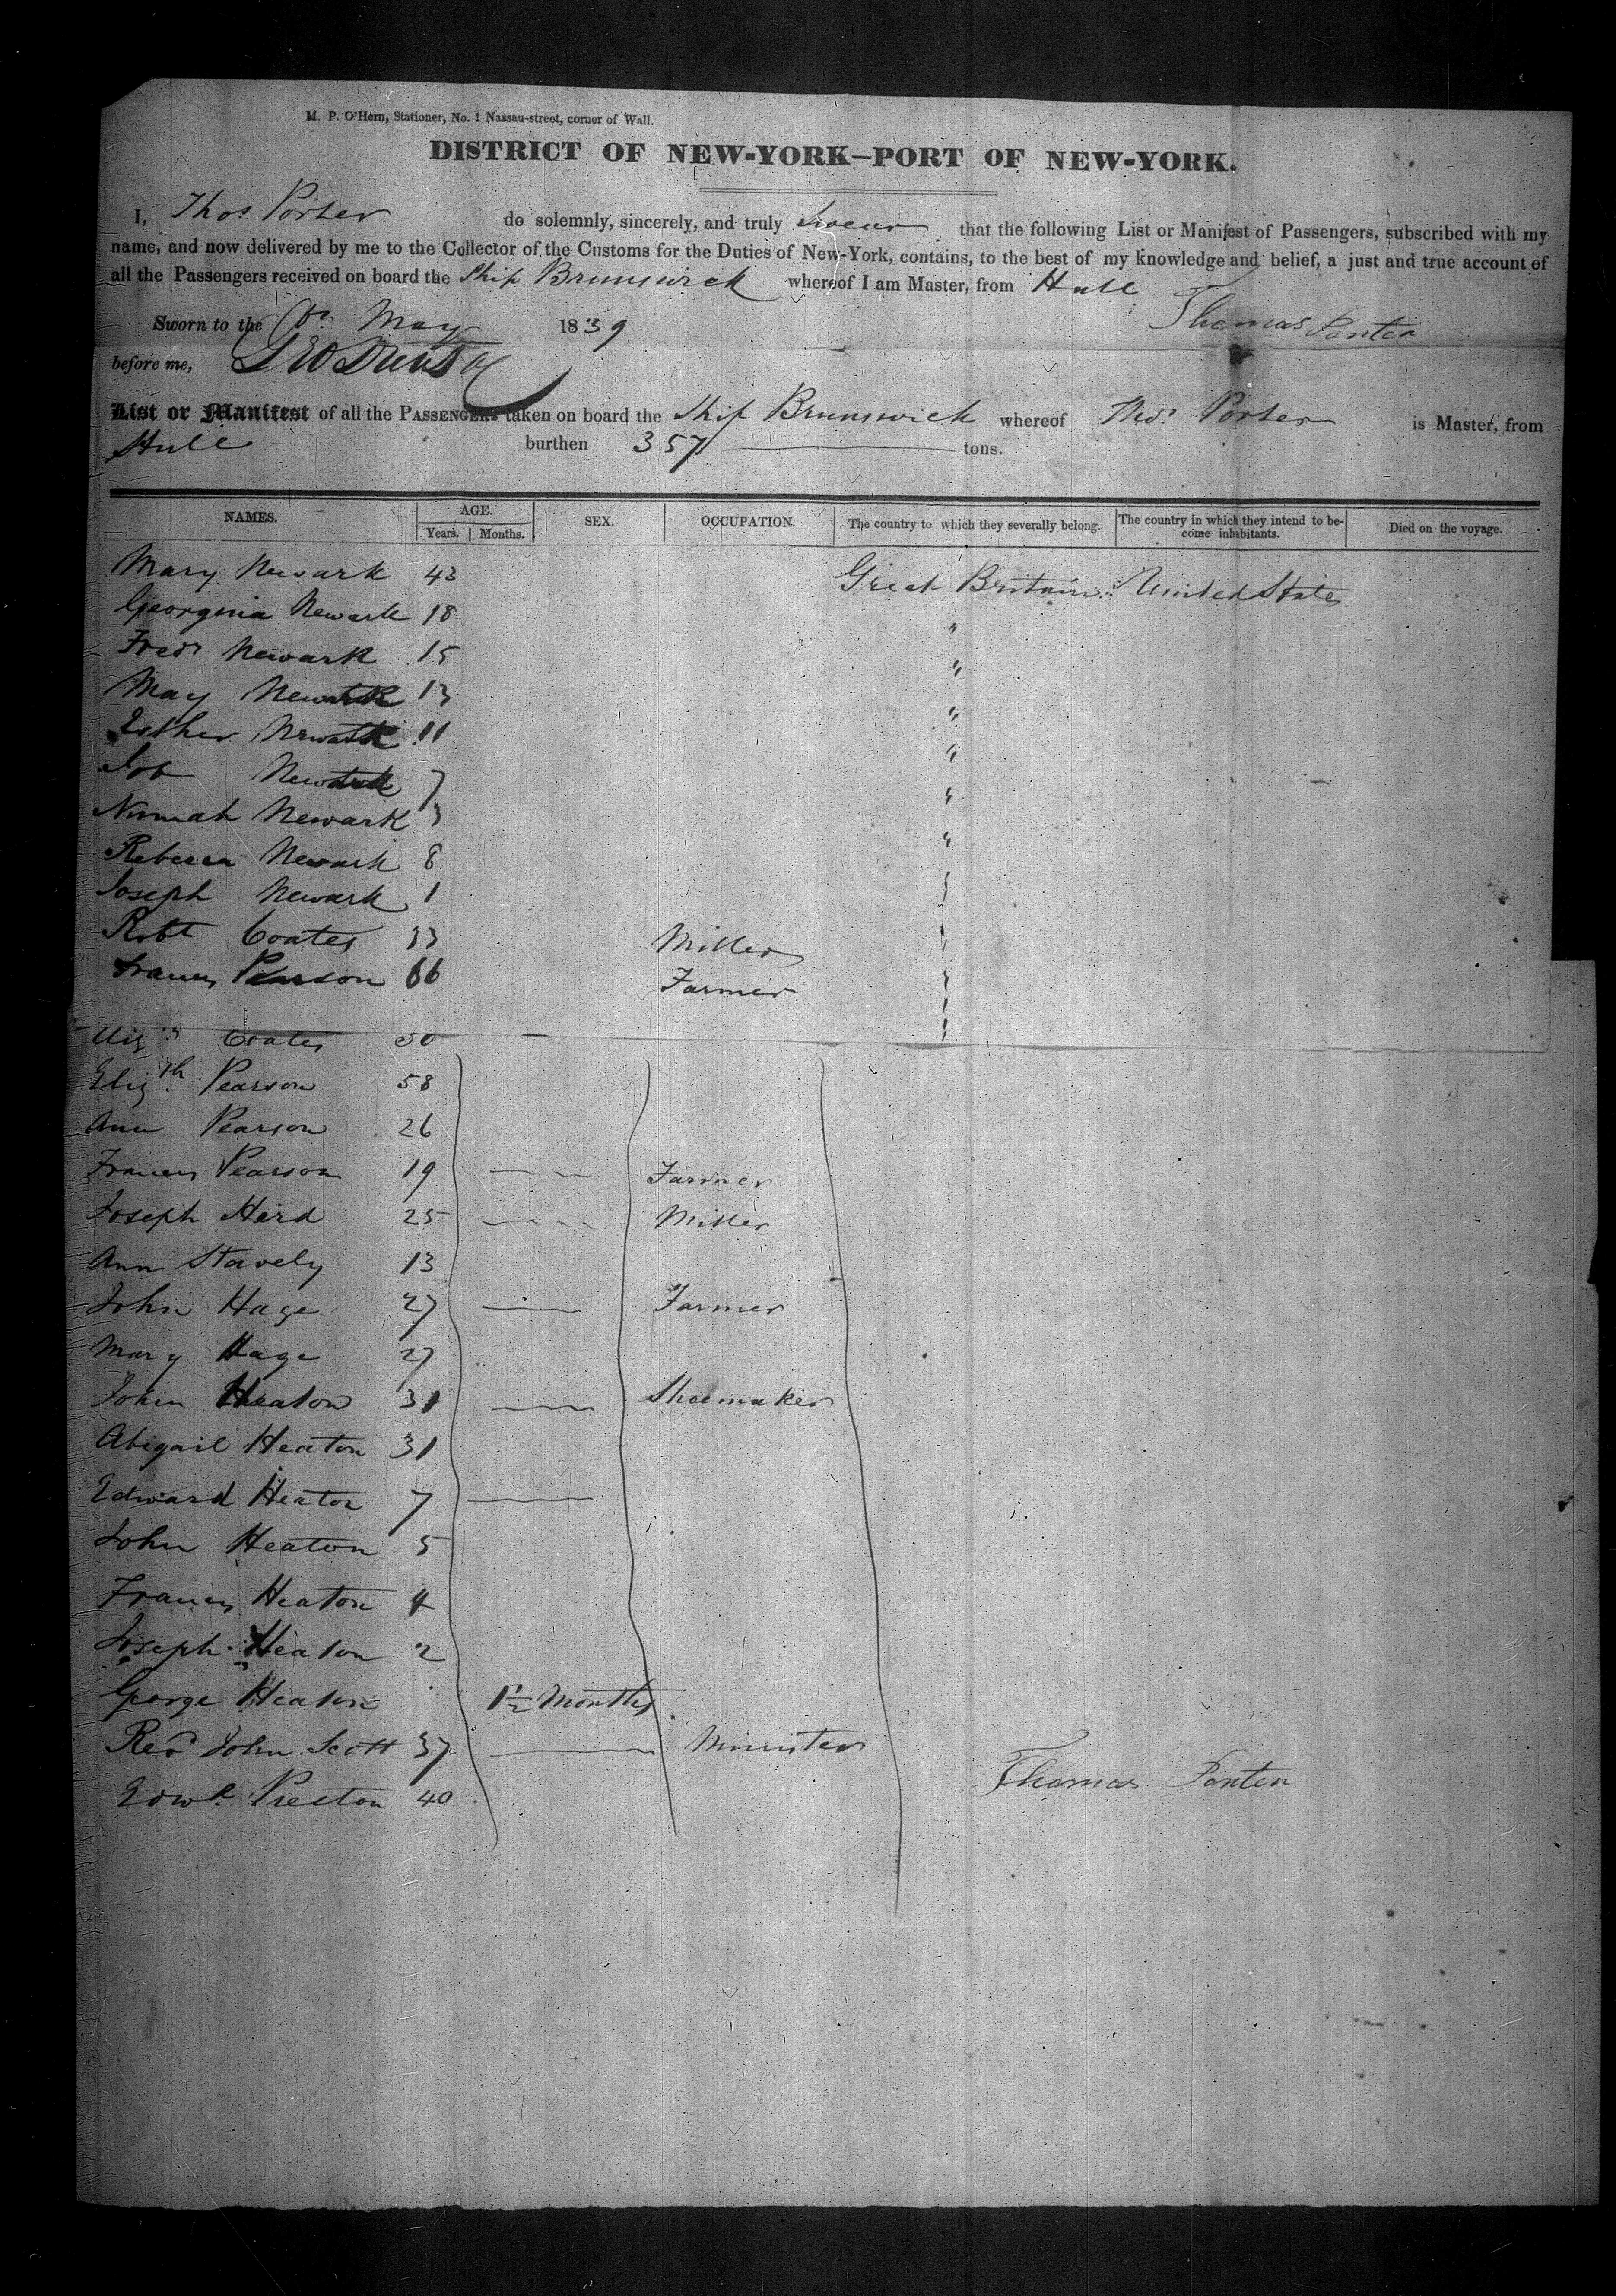 M. P. O'Hern, Stationer, No. 1 Nassau-street, corner of Wall.
DISTRICT OF NEW-YORK—PORT OF NEW-YORK.
I, Thos Porter do solemnly, sincerely, and truly swear that the following List or Manifest of Passengers, subscribed with my
name, and now delivered by me to the Collector of the Customs for the Duties of New-York, contains, to the best of my knowledge and belief, a just and true account of
all the Passengers received on board the Ship Brunswick whereof I am Master, from Hull
Sworn to the May 1839 Thomas Porter
before me,
List or Manifest of all the PASSENGERS taken on board the Ship Brunswick whereof Thos. Porter is Master, from
Hull burthen 357 tons.
NAMES. AGE. Years. Months. SEX. OCCUPATION. The country to which they severally belong. The country in which they intend to become inhabitants. Died on the voyage.
Mary Newark 43 Great Britain United States
Georgina Newark 18 "
Fredk Newark 15 "
May Newark 13 "
Esther Newark 11 "
Job Newark 7 "
Newark 3 "
Rebecca Newark 8 "
Joseph Newark 1 "
Robt Coates 33 Miller "
Frances Pearson 66 Farmer "
Coates 30
Elizth Pearson 58
Ann Pearson 26
Frances Pearson 19 Farmer
Joseph Herd 25 Miller
Ann Stavely 13
John Hage 27 Farmer
Mary Hage 27
John Heaton 31 Shoemaker
Abigail Heaton 31
Edward Heaton 7
John Heaton 5
Frances Heaton 4
Joseph Heaton 2
George Heaton 1½ Months
Revd John Scott 37 Minister
Edwd. Preston 40
Thomas Porter